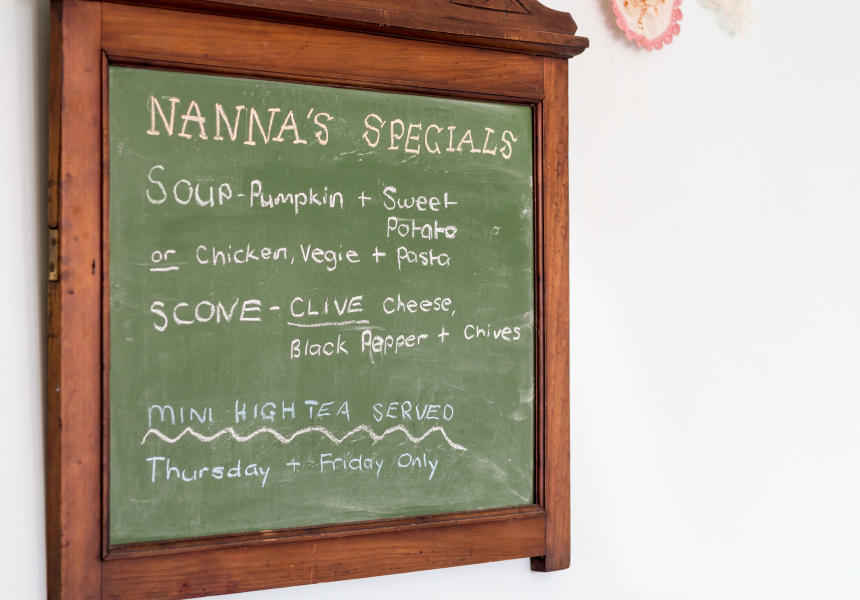 NANNA'S SPECIALS
SOUP - Pumpkin + Sweet
Potato
or Chicken, Vegie + Pasta
SCONE - CLIVE Cheese,
Black Pepper + Chives
MINI HIGH TEA SERVED
Thursday + Friday Only